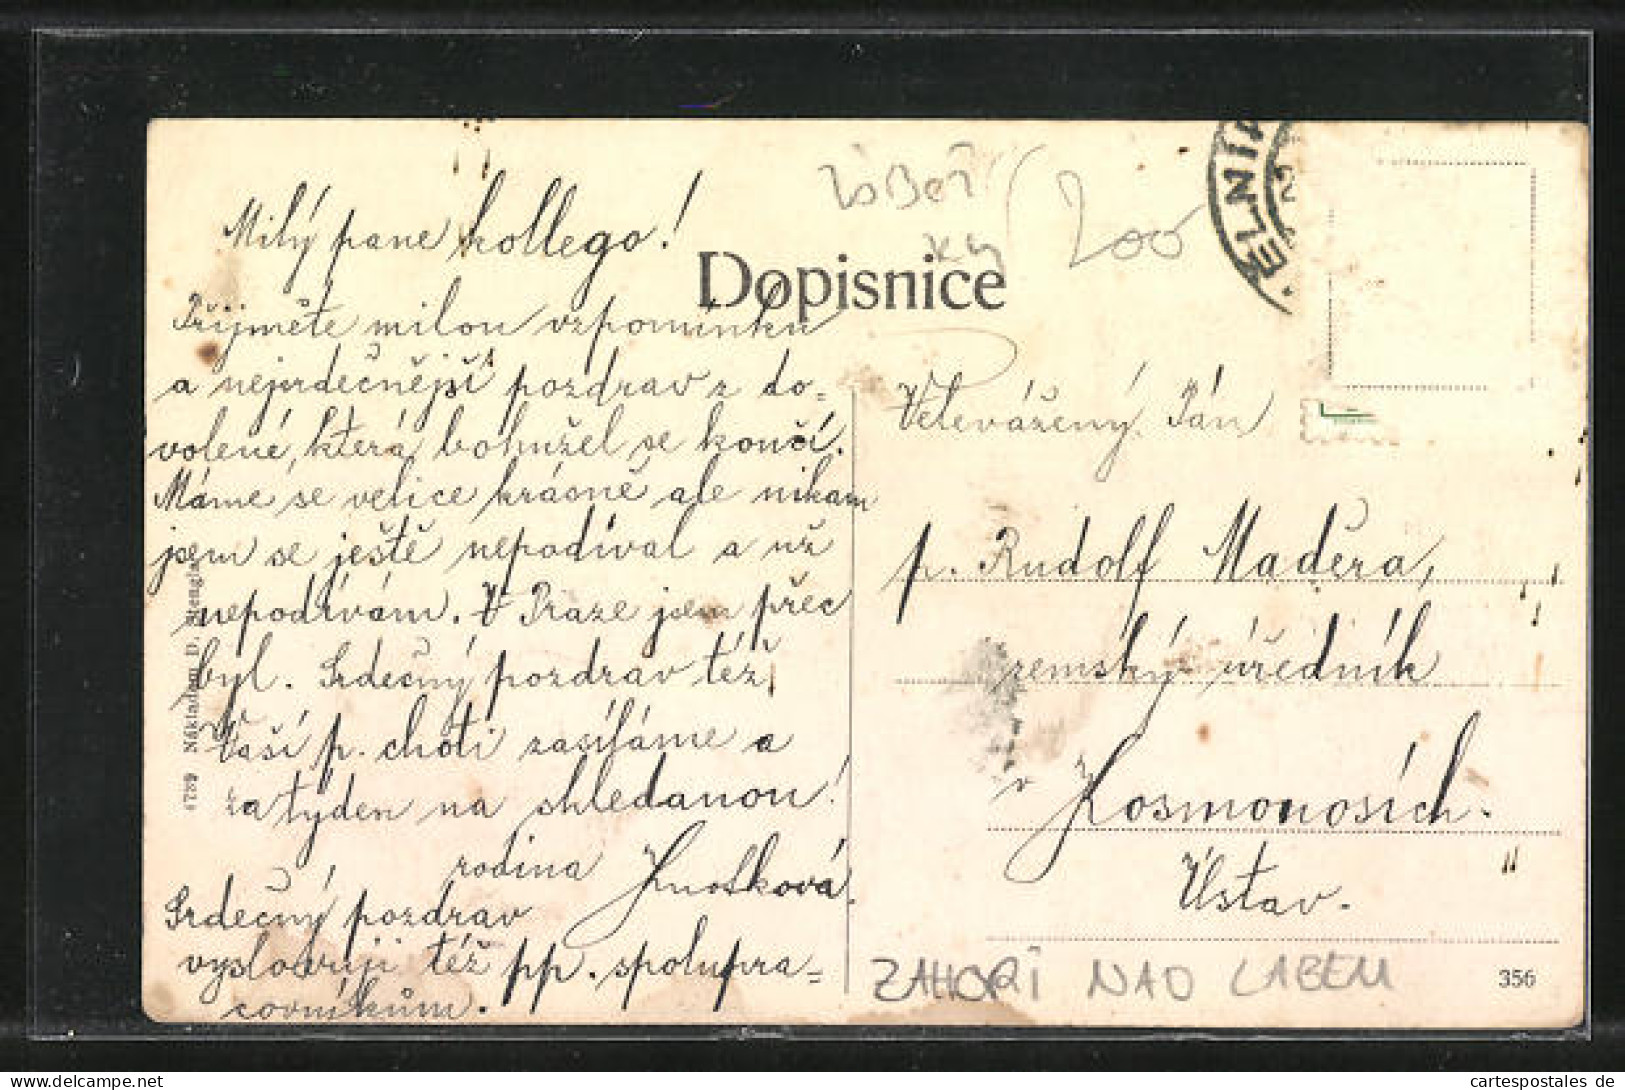 Milý pane kollego!
Přijměte milou vzpomínku
a nejsrdečnější pozdrav z do-
volené, která bohužel se končí.
Máme se velice krásně ale nikam
jsem se ještě nepodíval a už
nepodívám. V Praze jsem přec
byl. Srdečný pozdrav též
Vaší p. choti zasíláme a
za týden na shledanou!
rodina Knotková.
Srdečný pozdrav
vyslovuji též pp. spolupra-
covníkům.
Nákladem D.
Dopisnice
200
ELNÍK
Velevážený Pán
p. Rudolf Maděra,
zemský úředník
v Kosmonosích.
Ústav.
ZAHOŘÍ NAD LABEM
356
cartespostales de